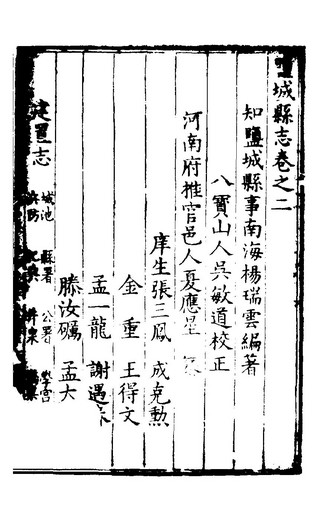 城縣志卷之二
知鹽城縣事南海楊瑞雲編著
八寶山人吳敏道校正
河南府推官邑人夏應星
庠生張三鳳 成克勳
金重 王得文
孟一龍 謝遇
滕汝礪 孟大
建置志
城池 縣署 公署 學宮